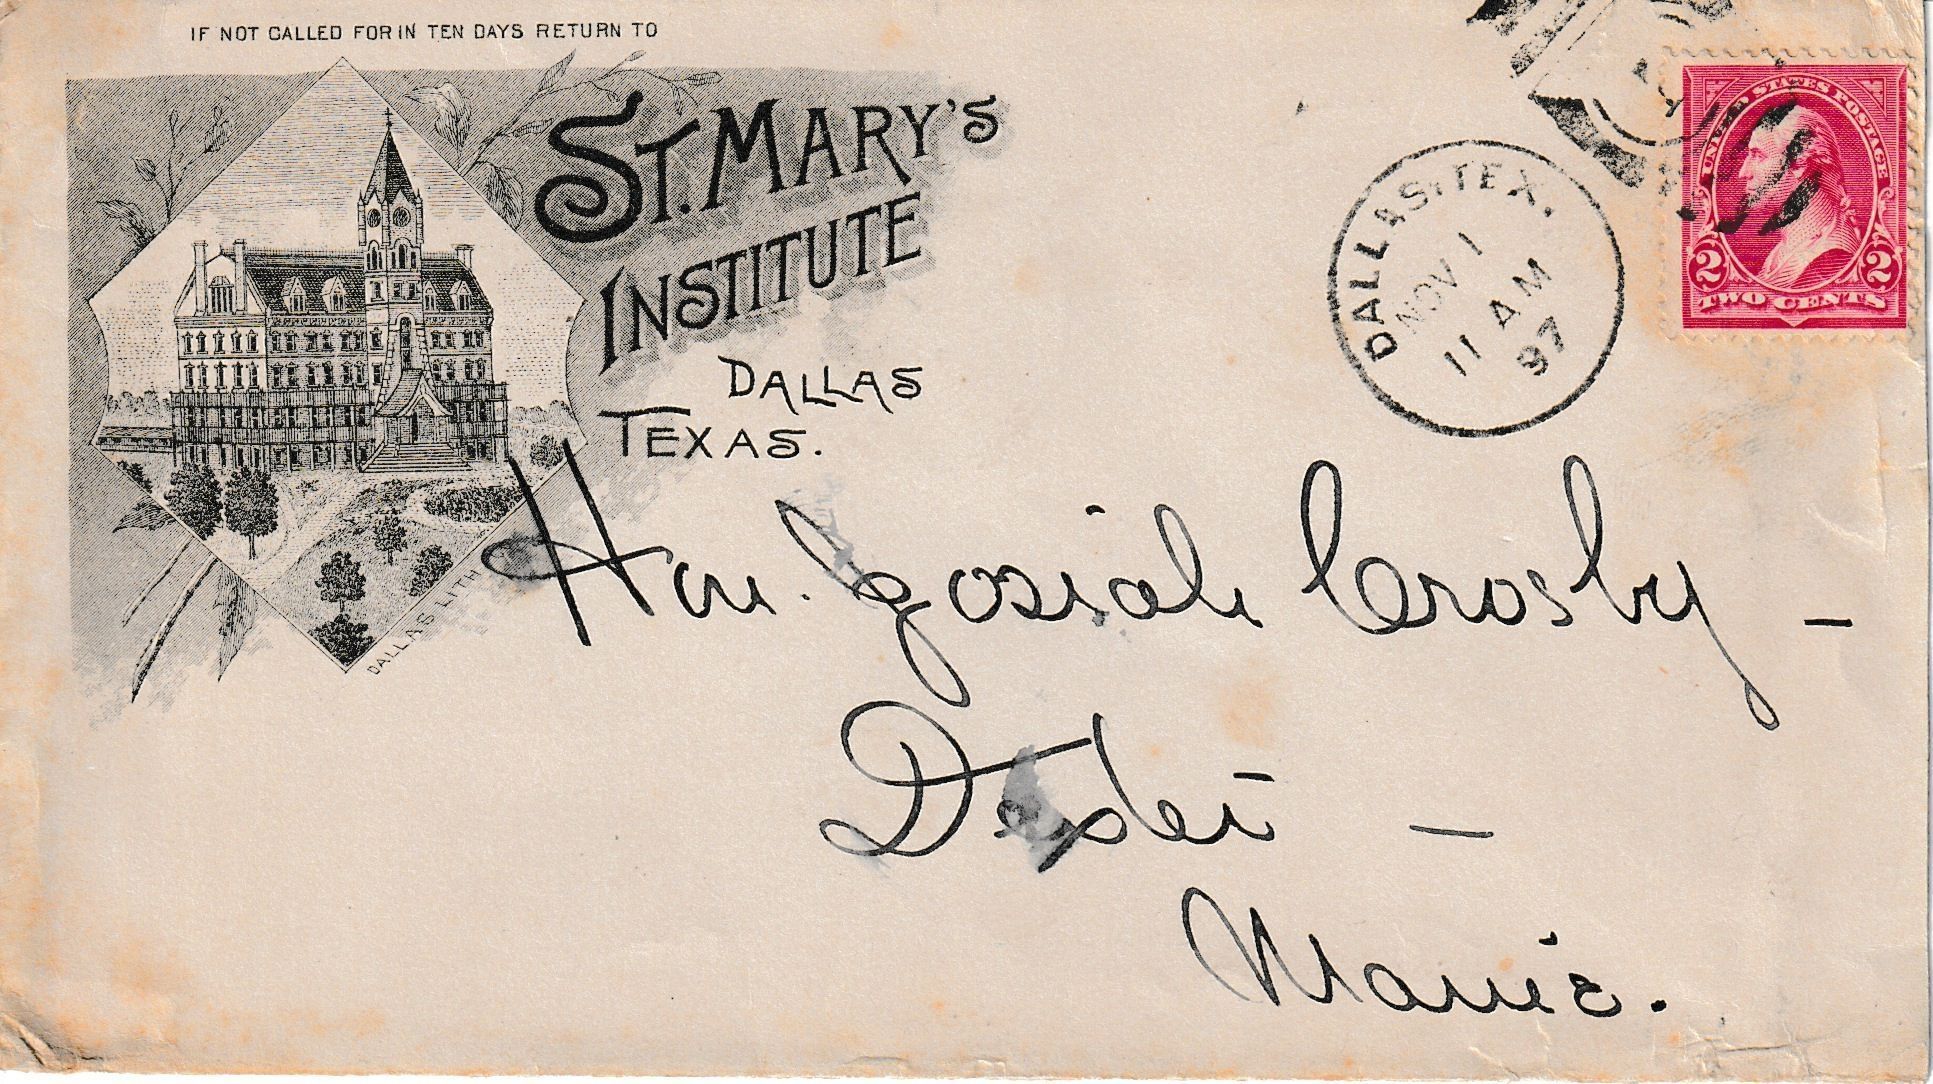 IF NOT CALLED FOR IN TEN DAYS RETURN TO
ST. MARY'S
INSTITUTE
DALLAS
TEXAS.
DALLAS LITH
DALLAS, TEX.
NOV 1
11 AM
97
UNITED STATES POSTAGE
2 2
TWO CENTS
Hon. Josiah Crosby –
Dexter –
Maine.